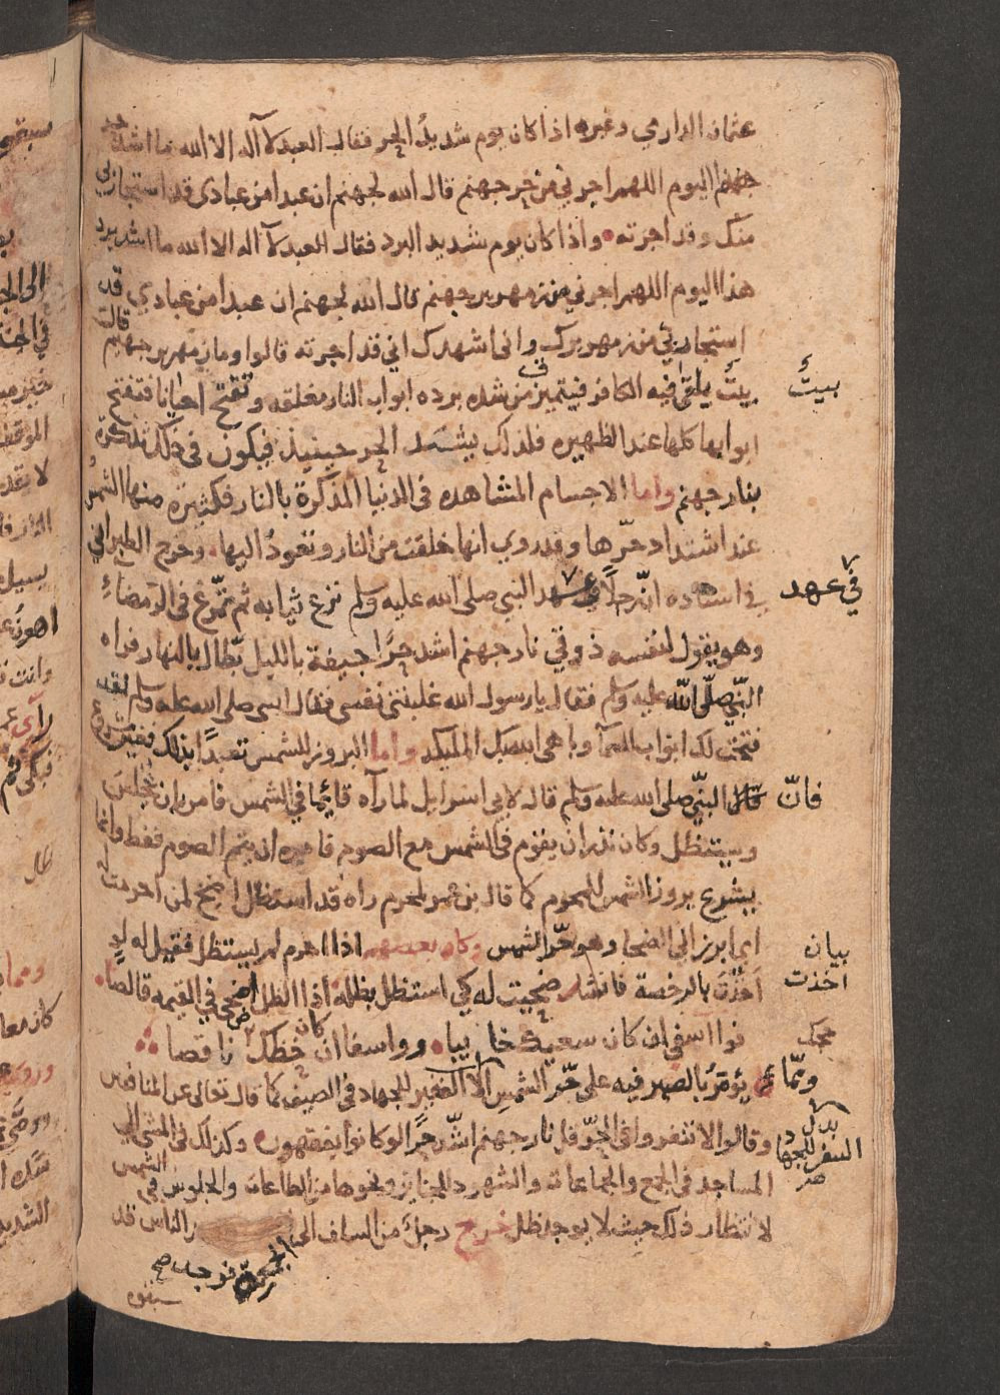 عثمان الدارمي وغيره اذا كان يوم شديدُ الحر فقال العبد لآ اله الا الله ما اشد حر
جهنم اليوم اللهم اجرني من حر جهنم قال الله لجهنم ان عبدا من عبادي قد استجار بي
منك وقد اجرته واذا كان يوم شديد البرد فقال العبد لآ اله الا الله ما اشد برد
هذا اليوم اللهم اجرني من زمهرير جهنم قال الله لجهنم ان عبدا من عبادي قد
استجار بي من زمهريرك واني اشهدك اني قد اجرته قالوا وما زمهرير جهنم قال
بيتٌ يلقى فيه الكافر فيتميز من شدة برده ابواب النار مغلقه وتفتح احيانا فتفتح
بيتٌ
ابوابها كلها عند الظهيره فلذلك يشتد الحر حينيذ فيكون في ذلك تذكرة
بنار جهنم واما الاجسام المشاهده في الدنيا المذكرة بالنار فكثيرة منها الشمس
عند اشتداد حرّها وقد روي انها خلقت من النار وتعودُ اليها وخرج الطبراني
في اسناده انّ رجلاً في عهد النبي صلى الله عليه وسلم نزع ثيابه ثم تمّرغ في الرمضاءِ
في عهد
وهو يقول لنفسه ذوقي نار جهنم اشد حرًّا جيفة بالليل بطّال بالنهار فراه
النبّي صلّى اللّه عليه وسلم فقال يا رسول الله غلبتني نفسي فقال النبي صلى الله عليه وسلم لقد
فتحت لك ابواب السمآ وباهى الله بك المليكه واما البروز للشمس تعبدًا بذلك فغير مشروع
قال النبّي صلى الله عليه وسلم قال لابي اسرايل لما رآه قائما في الشمس فامر بان يجلس
فانّ
ويستظل وكان نذر ان يقوم في الشمس مع الصوم فامره ان يتم الصوم فقط وانما
يشرع بروز الشمس للمحرم كما قال بن عمر لمحرم راه قد استظل اضح لمن احرمت له
اي ابرز الى الضحا وهو حرّ الشمس وكان بعضهم اذا احرم لم يستظل فقيل له لو
بيان
اَخَذْتَ بالرخصة فانشد ضحيت له كي استظل بظله اذا الظل اضحى في القيمه قالصا
اخذت
فوا اسفى ان كان سعيك خايبا ووا اسفا ان كان حظك ناقصا
حجك
يؤمَرُ بالصبر فيه على حرّ الشمس للجهاد في الصيف كما قال تعالى عن المنافقين
وممّا
وقالوا لا تنفروا في الحرّ قل نار جهنم اشدّ حرًّا لو كانوا يفقهون وكذلك في المشي الي
بدل السفر للجهاد
المساجد في الجمع والجماعات والشهود للجنايز ونحوها من الطاعات والجلوس في الشمس
لانتظار ذلك حيث لا يوجد ظل خرج رجلٌ من السلف الى الناس قد
الجمعة فوجد صح
سبقوه